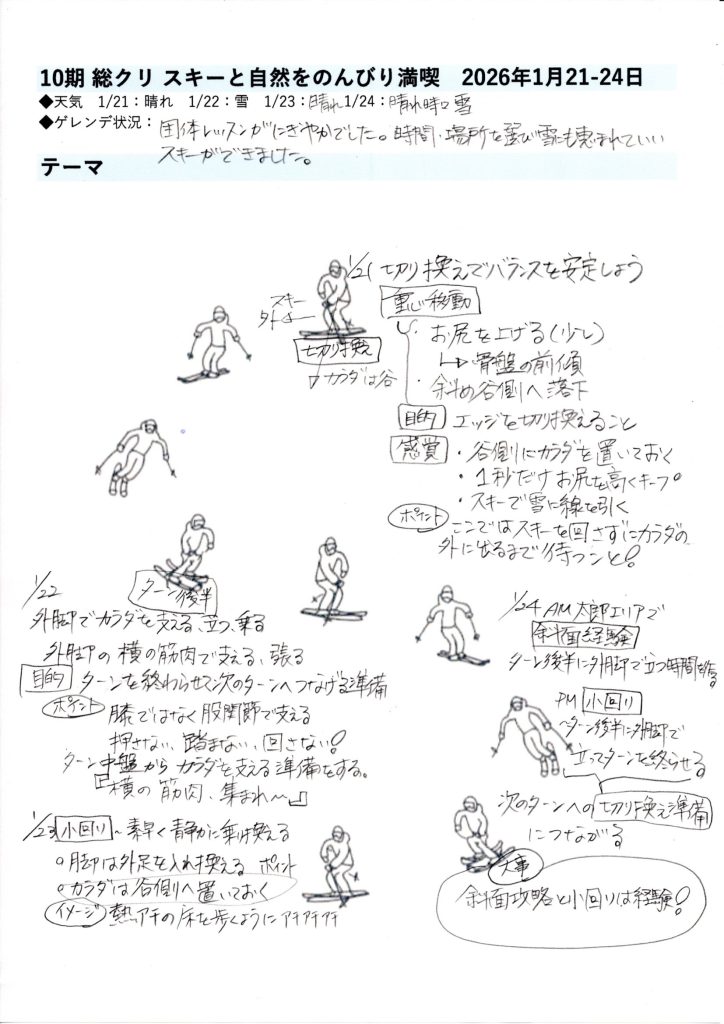 10期 総クリ スキーと自然をのんびり満喫　2026年1月21-24日
◆天気　1/21：晴れ　1/22：雪　1/23：晴れ 1/24：晴れ時々雪
◆ゲレンデ状況：団体レッスンがにぎやかでした。時間、場所を選び雪にも恵まれていい
スキーができました。
テーマ
1/21 切り換えでバランスを安定しよう
重心移動
・お尻を上げる(少し)
↳骨盤の前傾
・斜め谷側へ落下
目的 エッジを切り換えること
感覚 ・谷側にカラダを置いておく
・1秒だけお尻を高くキープ。
・スキーで雪に線を引く
ポイント ここではスキーを回さずにカラダの
外に出るまで待つこと!
スキー
外
切り換え
カラダは谷
1/22
ターン後半
外脚でカラダを支える、立つ、乗る
外脚の横の筋肉で支える、張る
目的 ターンを終わらせて次のターンへつなげる準備
ポイント 膝ではなく股関節で支える
押さない、踏まない、回さない!
ターン中盤からカラダを支える準備をする。
『横の筋肉、集まれ〜』
1/23 小回り〜素早く静かに乗り換える
○脚は外足を入れ換える ポイント
○カラダは谷側へ置いておく
イメージ 熱々アチの床を歩くように アチアチアチ
1/24 AM 太郎エリアで
斜面経験
ターン後半に外脚で立つ時間を作る
PM 小回り
〜ターン後半に外脚で
立ってターンを終らせる
次のターンへの切り換え準備
につながる
大事
斜面攻略と小回りは経験!